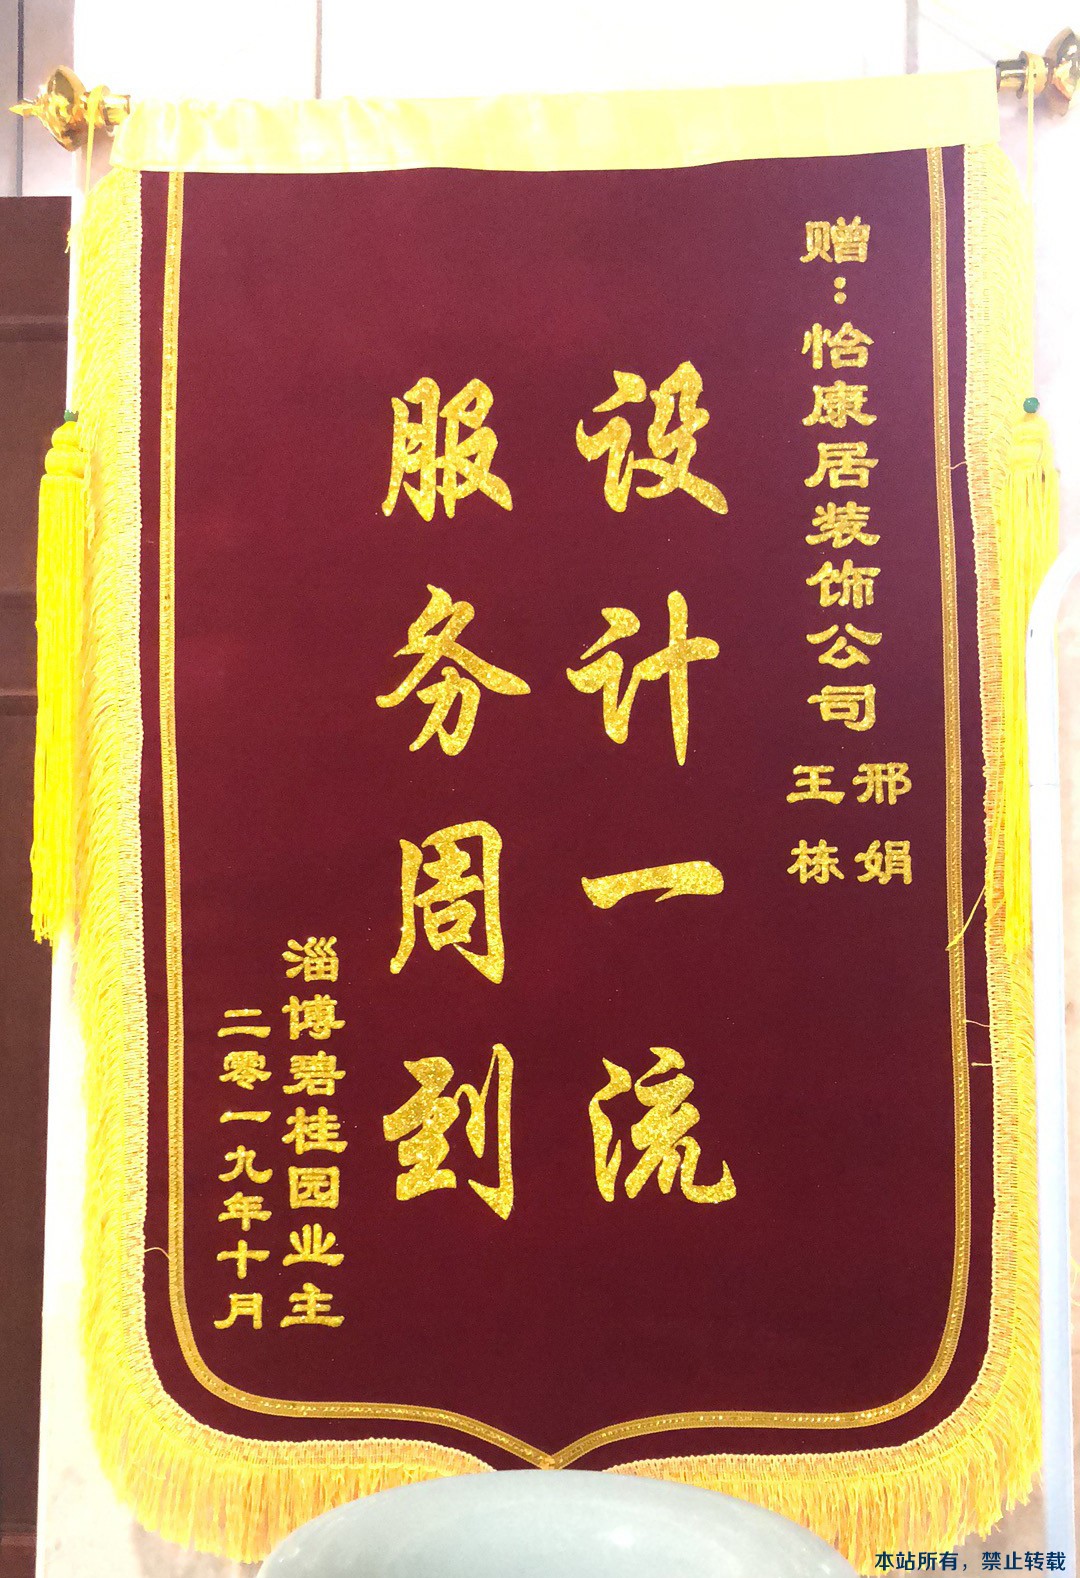 赠：怡康居装饰公司
邢娟
王栋
设计一流
服务周到
淄博碧桂园业主
二零一九年十月
本站所有，禁止转载